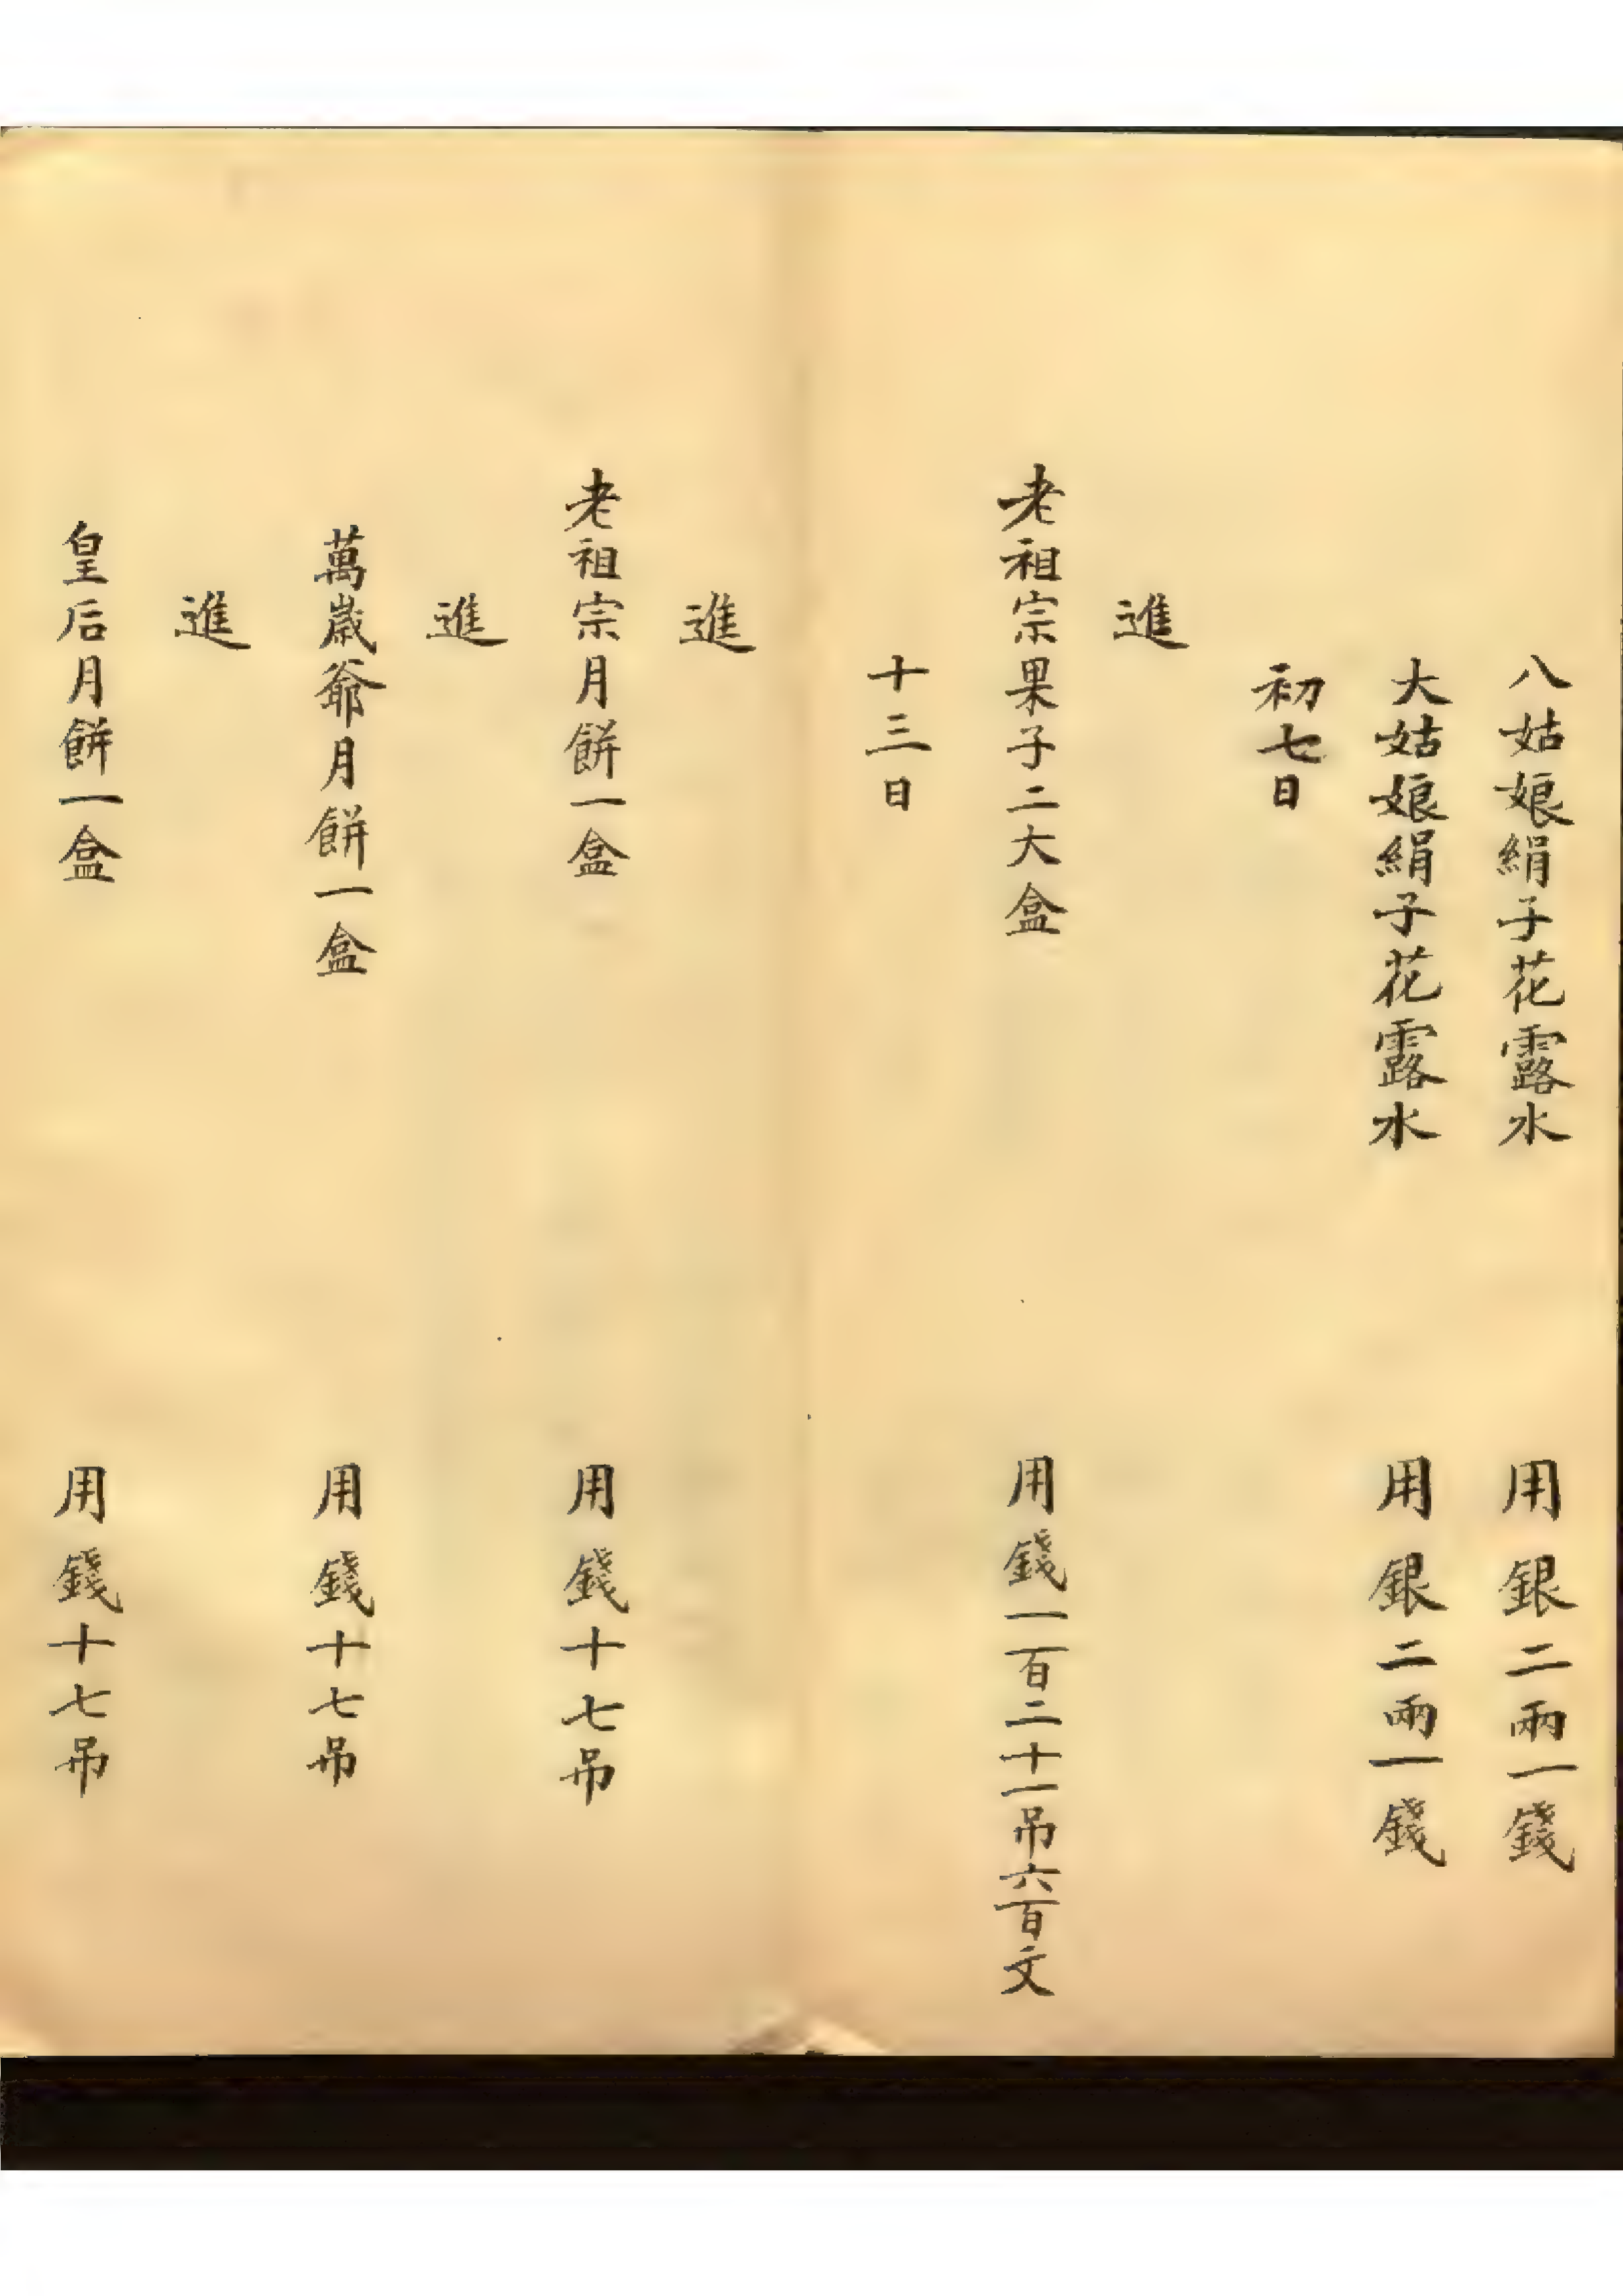 八姑娘絹子花露水 用銀二兩一錢
大姑娘絹子花露水 用銀二兩一錢
初七日
進
老祖宗果子二大盒 用錢一百二十一吊六百文
十三日
進
老祖宗月餅一盒 用錢十七吊
進
萬歲爺月餅一盒 用錢十七吊
進
皇后月餅一盒 用錢十七吊